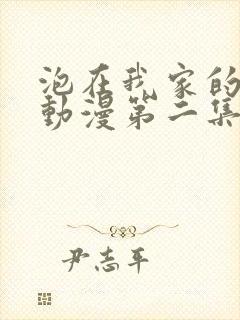 泡在我家的
動漫第二集
尹志平